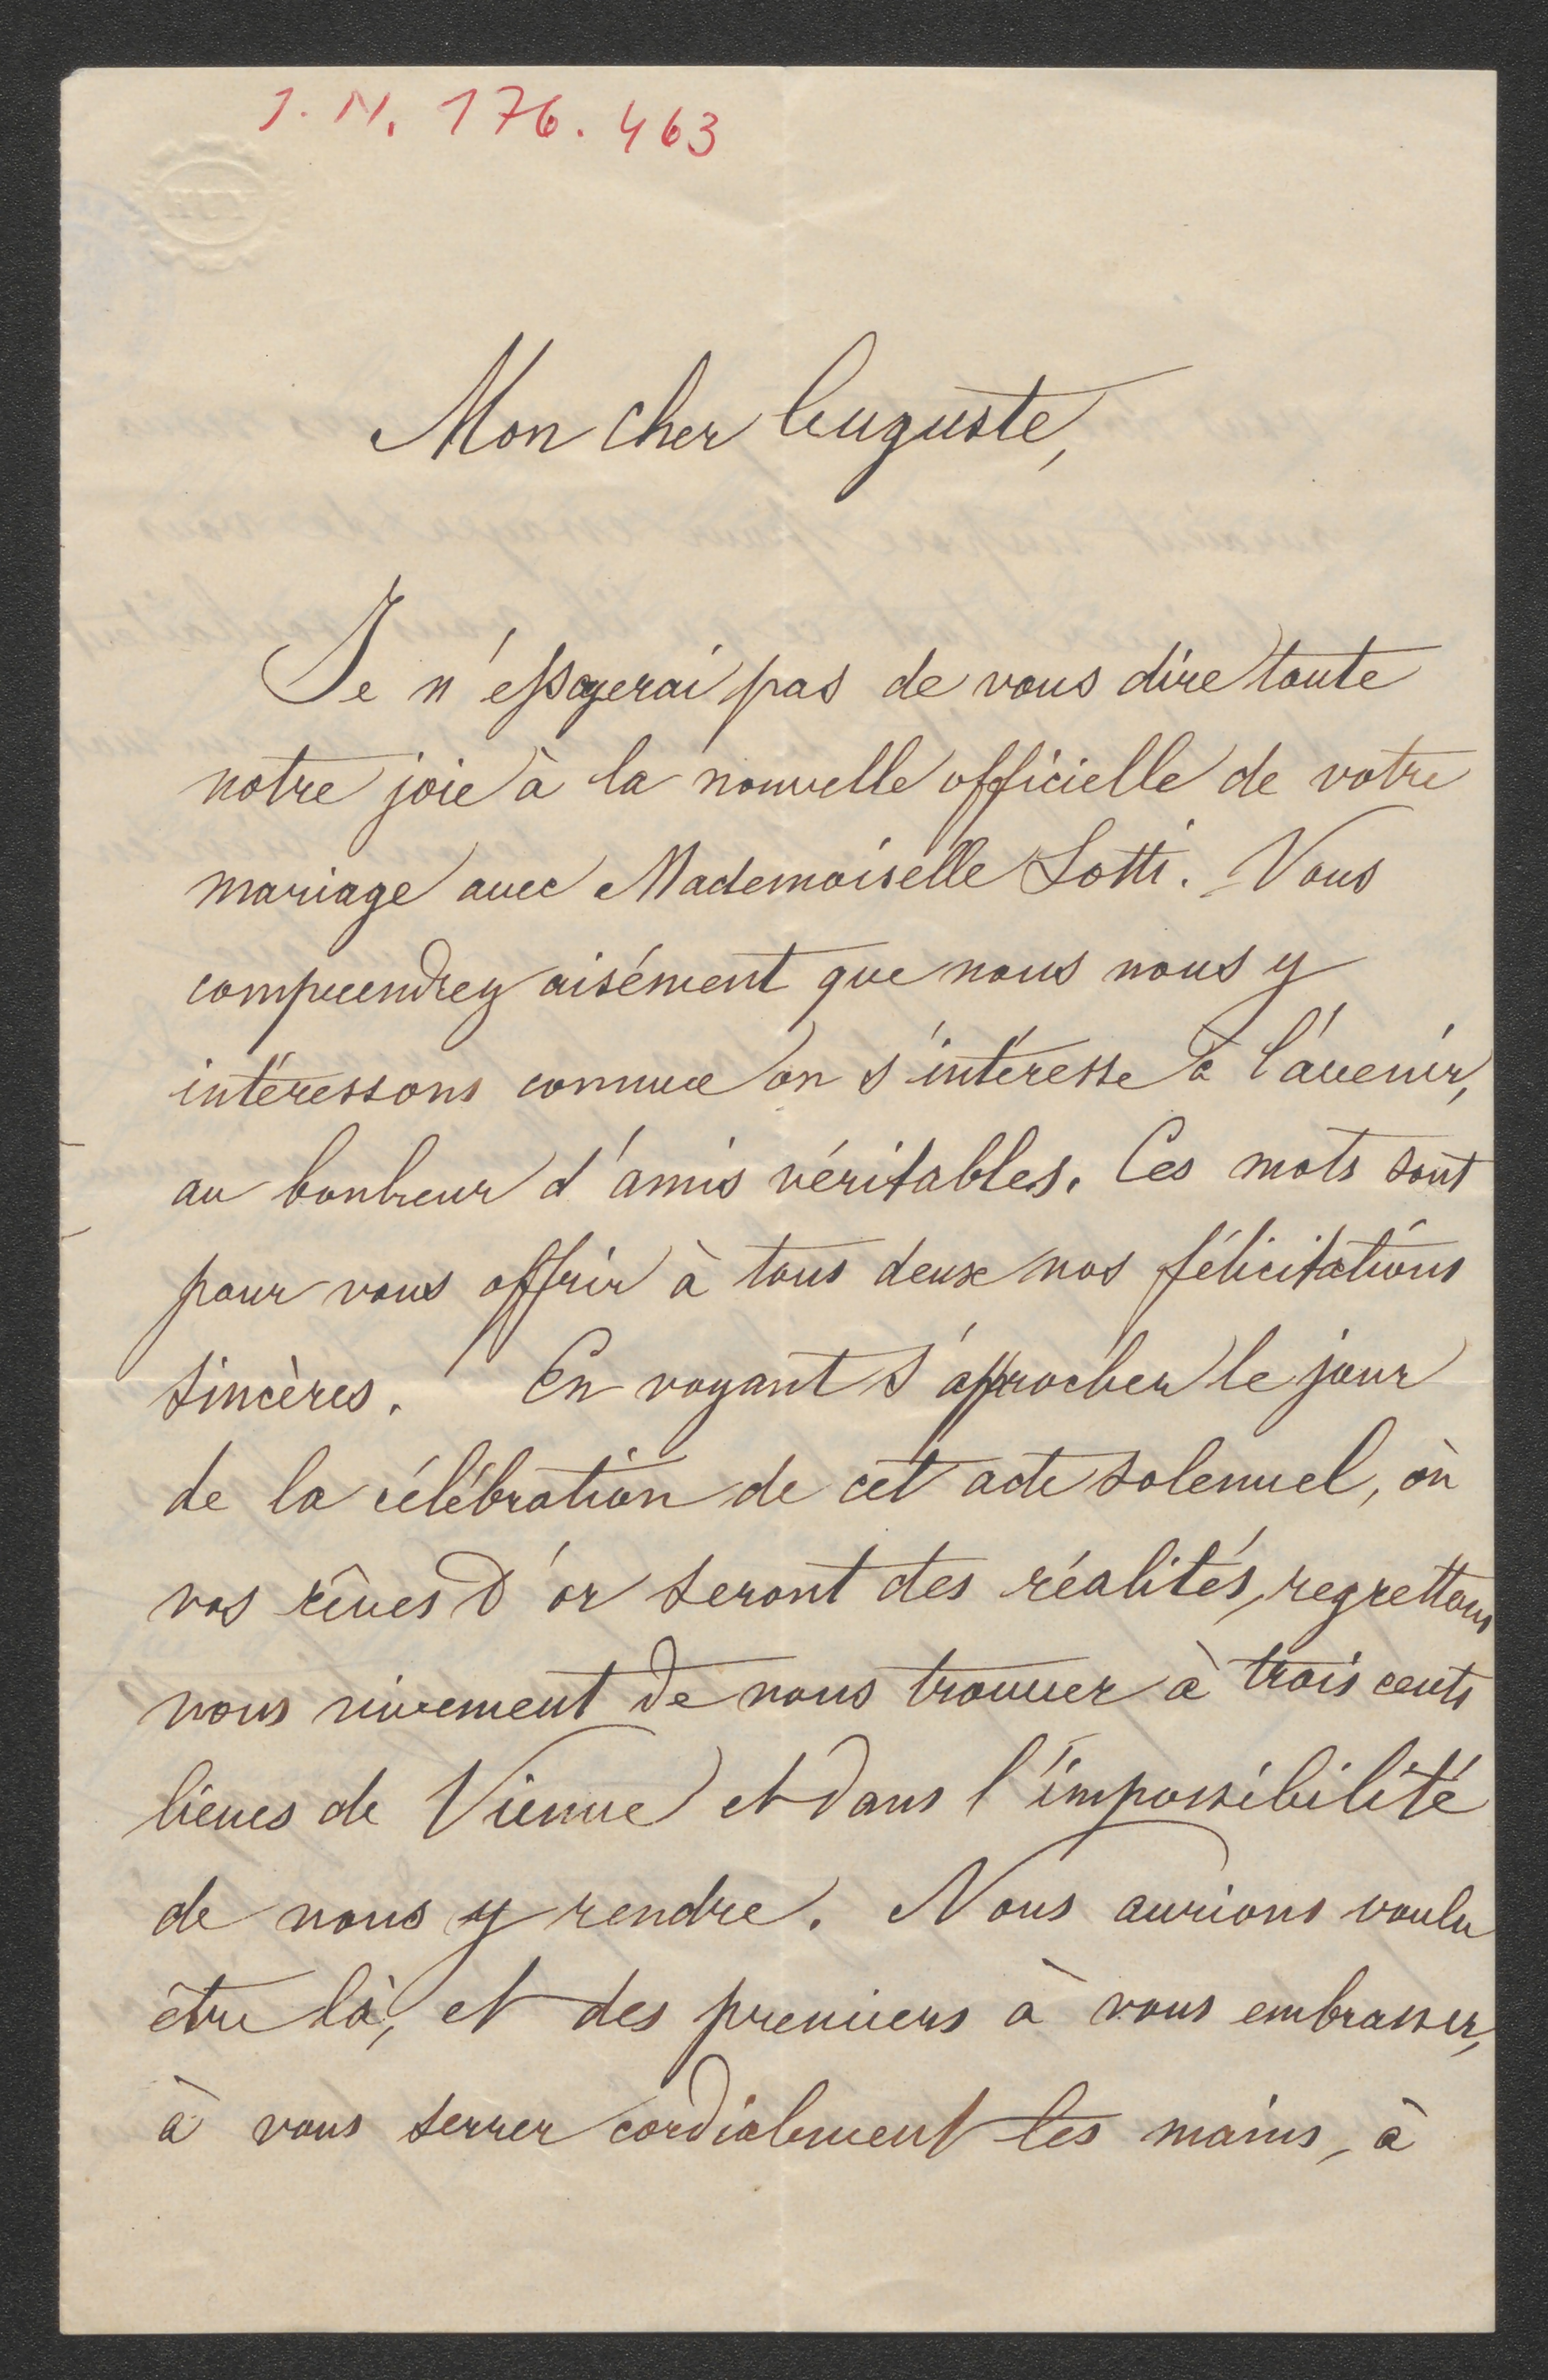 J. N. 176.463
Mon cher Auguste,
Je n'essayerai pas de vous dire toute
notre joie à la nouvelle officielle de votre
mariage avec Mademoiselle Lotti. Vous
comprendrez aisément que nous nous y
intéressons comme on s'intéresse à l'avenir,
au bonheur d'amis véritables. Ces mots sont
pour vous offrir à tous deux nos félicitations
sincères. En voyant s'approcher le jour
de la célébration de cet acte solennel, où
vos rêves d'or seront des réalités, regrettons
nous vivement de nous trouver à trois cents
lieues de Vienne et dans l'impossibilité
de nous y rendre. Nous aurions voulu
être là, et des premiers à vous embrasser,
à vous serrer cordialement les mains, à